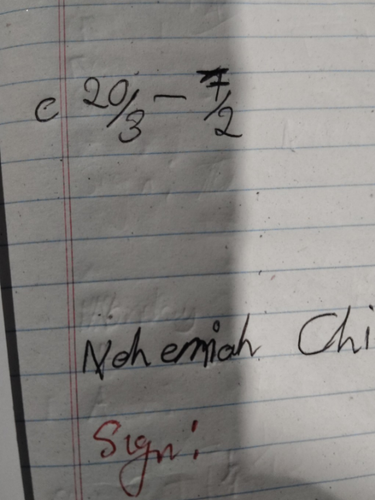 c 20/3 - 7/2
Nehemiah Chi
Sign: